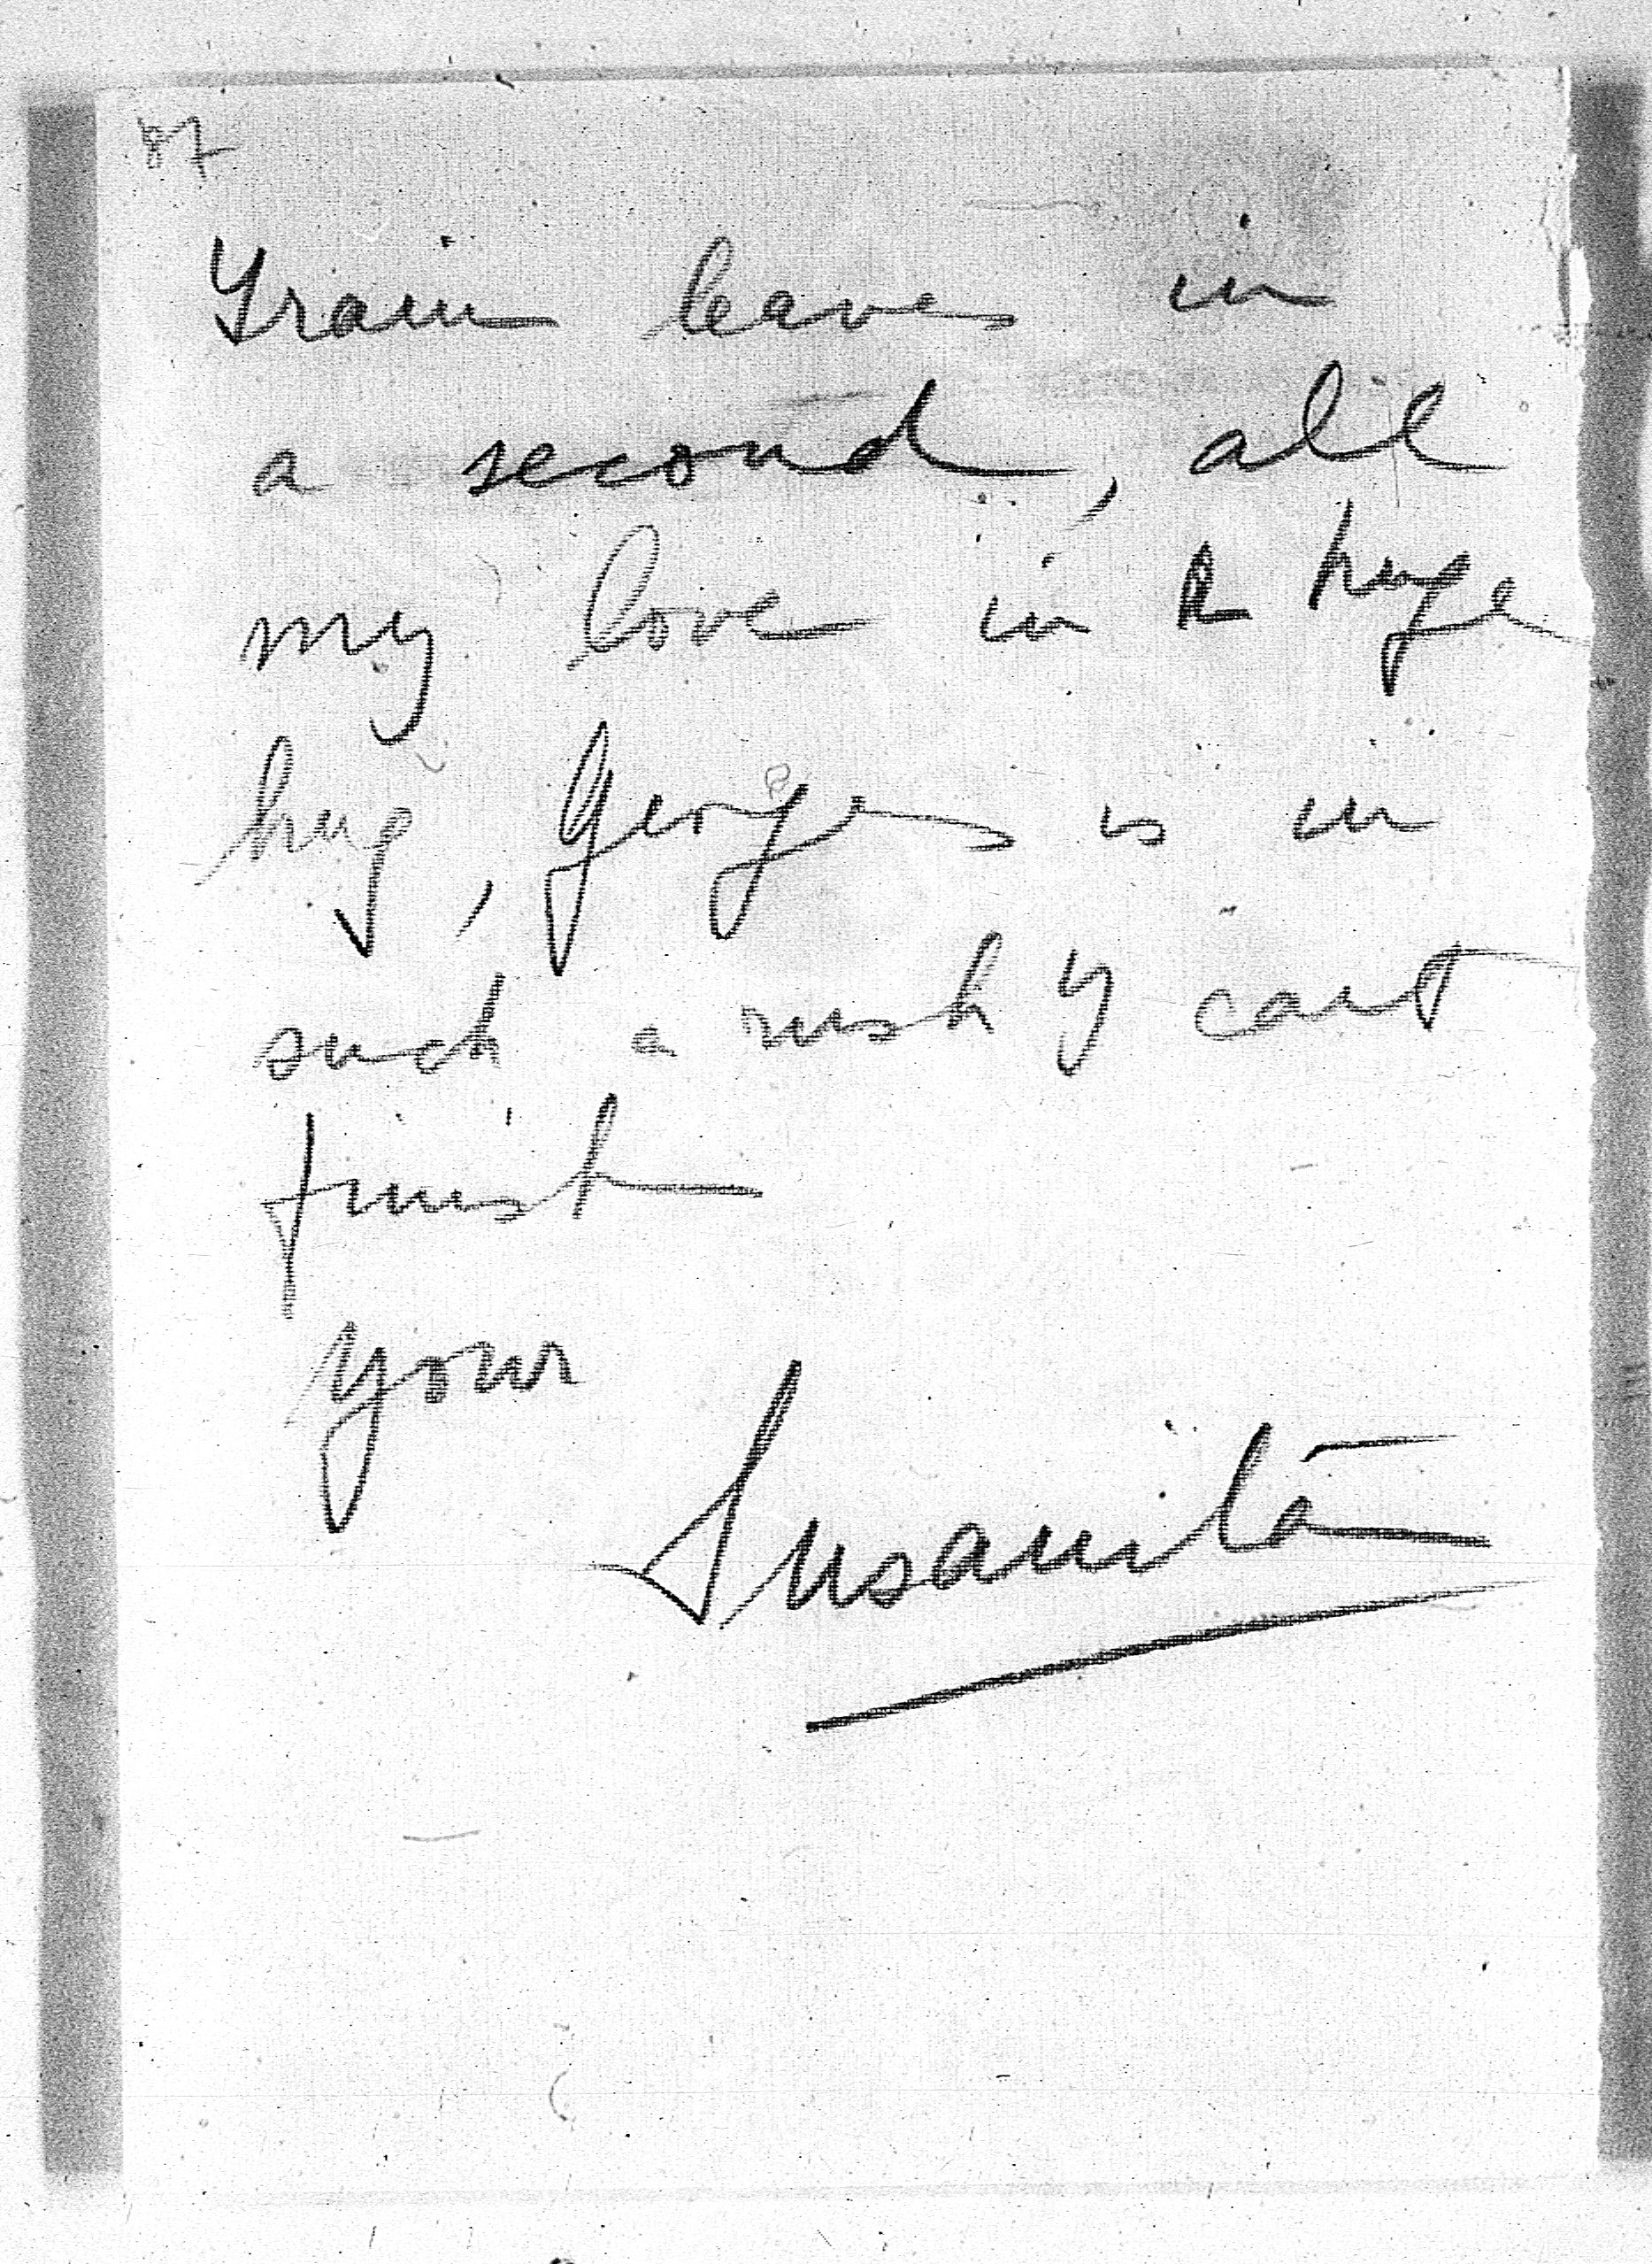 87
Train leaves in
a second, all
my love in a huge
hug, Georges is in
such a rush I cant
finish
your
Susanita